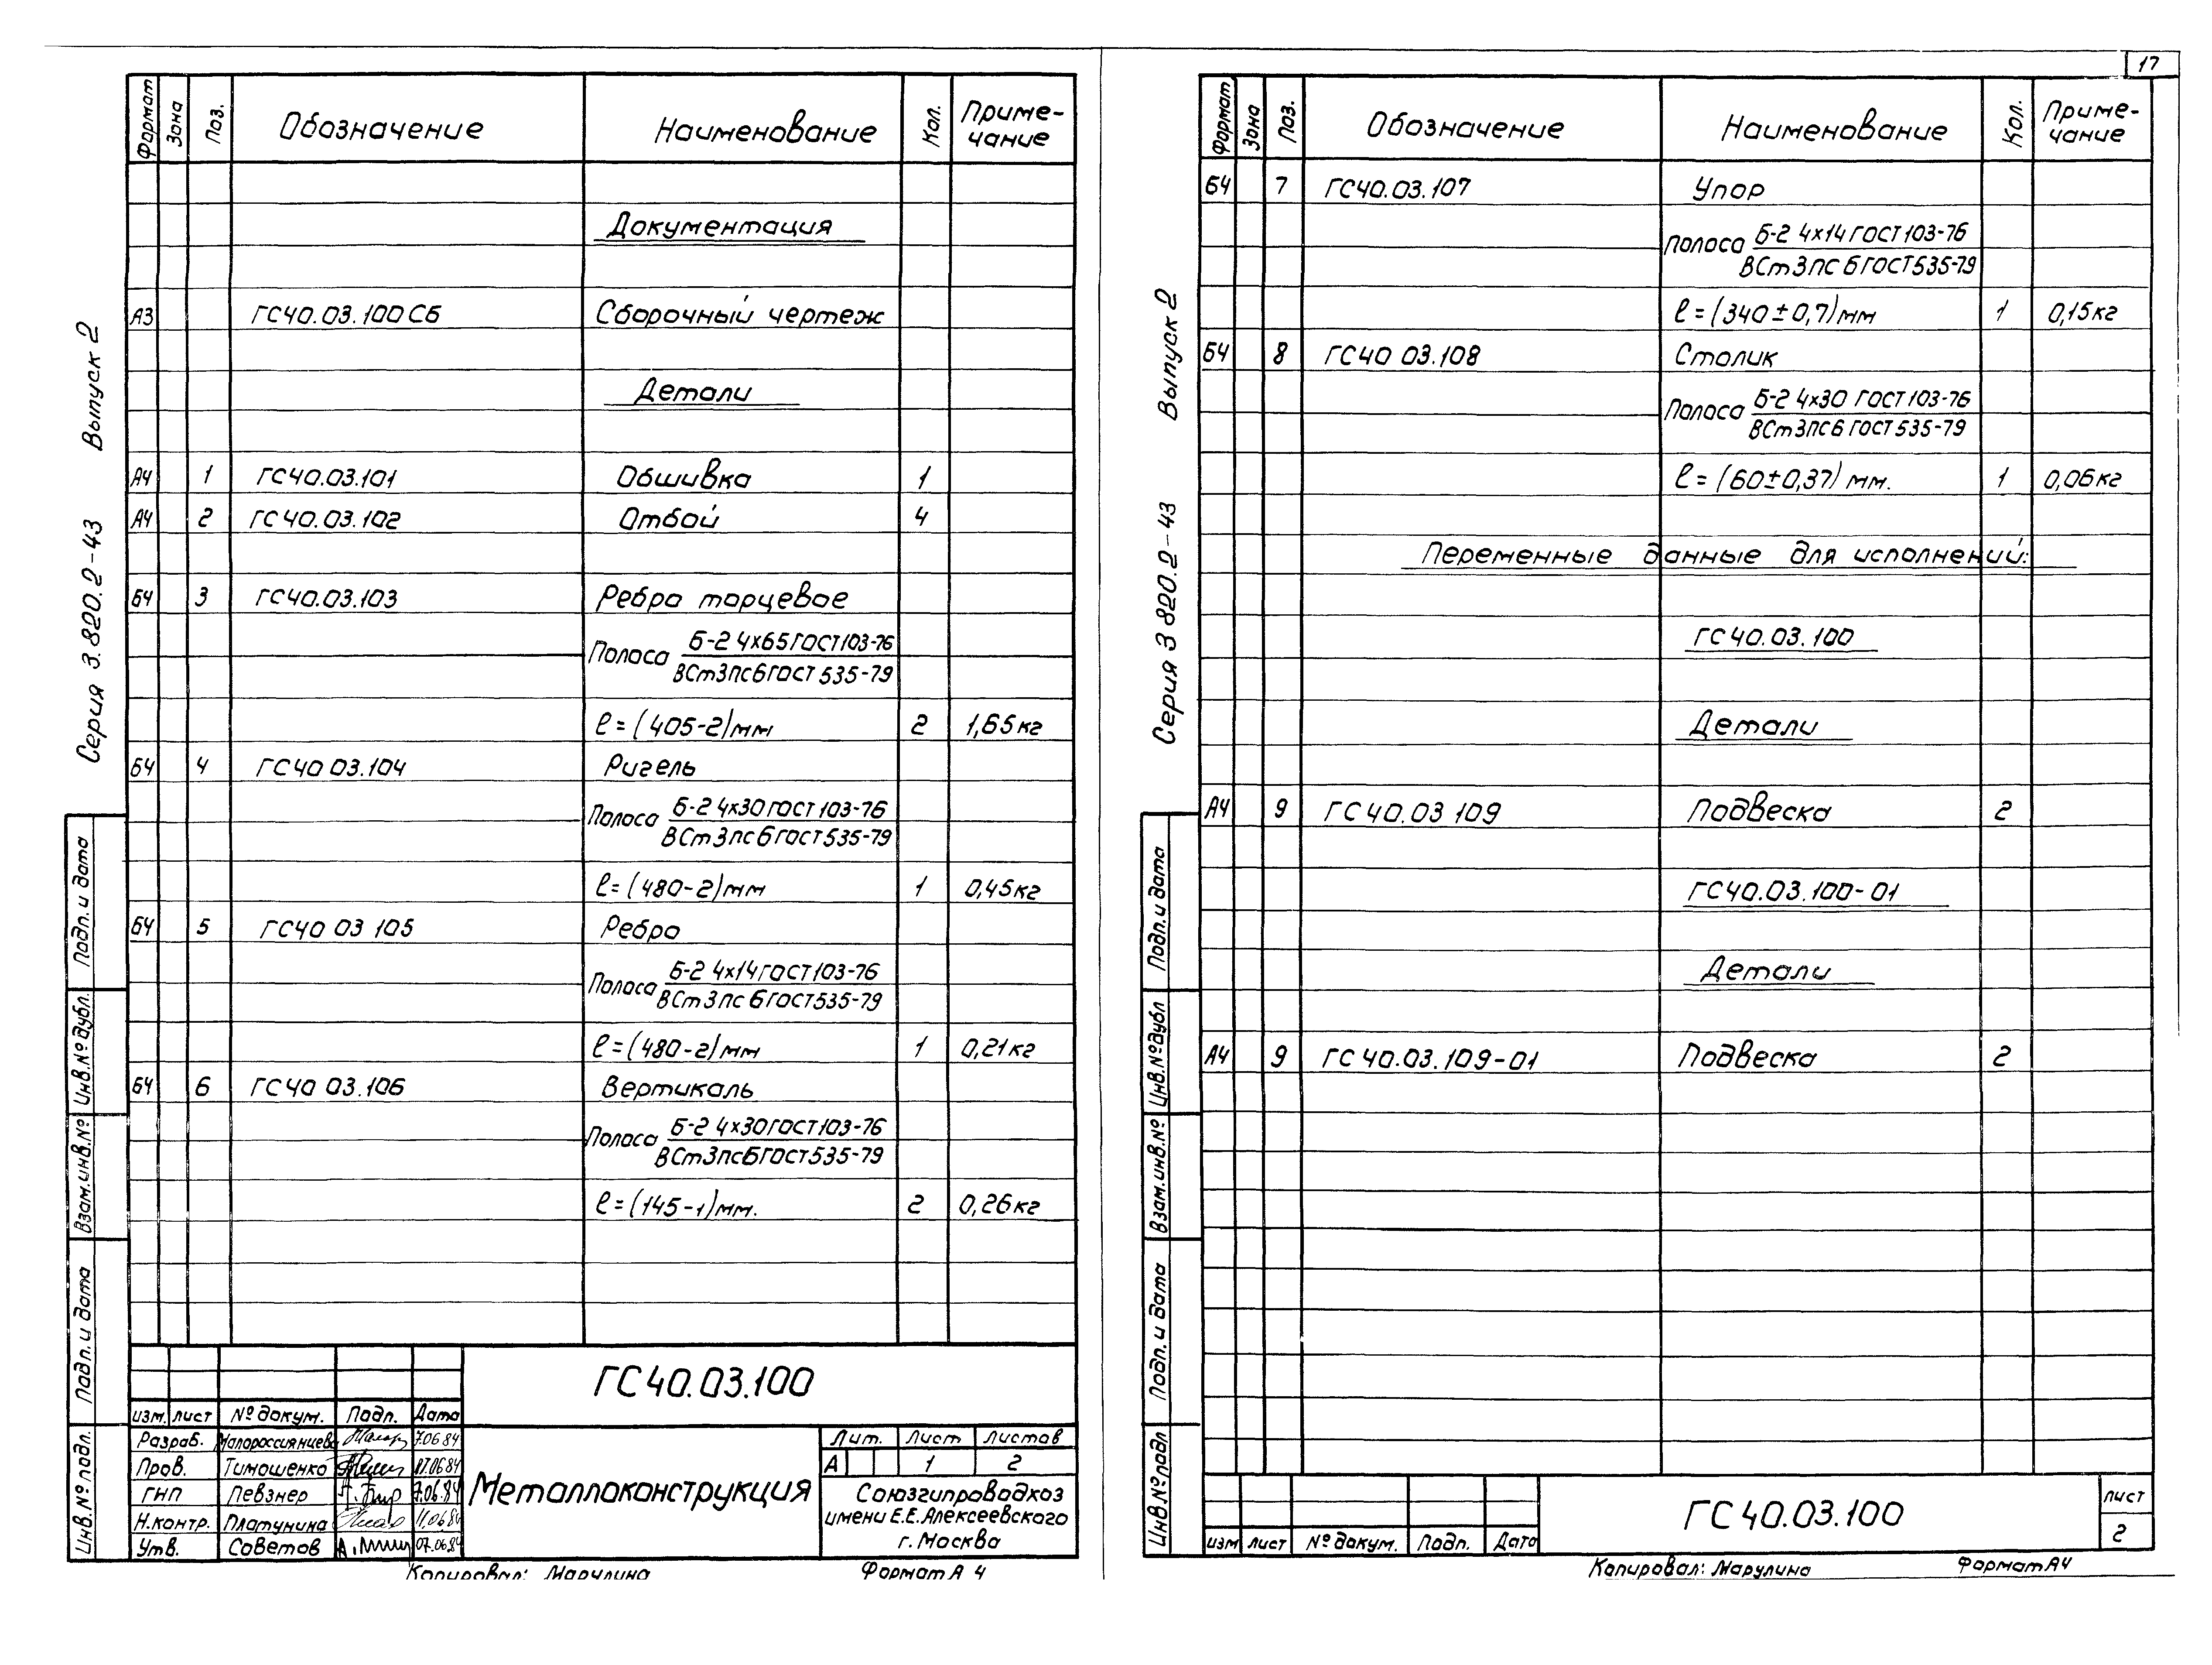 17
Формат Зона Поз. Обозначение Наименование Кол. Приме-
чание
Документация
А3 ГС40.03.100 СБ Сборочный чертеж
Детали
А4 1 ГС40.03.101 Обшивка 1
А4 2 ГС40.03.102 Отбой 4
БЧ 3 ГС40.03.103 Ребро торцевое
Полоса Б-2 4х65 ГОСТ 103-76
ВСт3пс6 ГОСТ 535-79
ℓ=(405-2)мм 2 1,65кг
БЧ 4 ГС40 03.104 Ригель
Полоса Б-2 4х30 ГОСТ 103-76
ВСт3пс6 ГОСТ 535-79
ℓ=(480-2)мм 1 0,45кг
БЧ 5 ГС40 03 105 Ребро
Полоса Б-2 4х14 ГОСТ 103-76
ВСт3пс6 ГОСТ 535-79
ℓ=(480-2)мм 1 0,21кг
БЧ 6 ГС40 03.106 Вертикаль
Полоса Б-2 4х30 ГОСТ 103-76
ВСт3пс6 ГОСТ 535-79
ℓ=(145-1)мм. 2 0,26кг
Серия 3.820.2-43 Выпуск 2
Подп. и дата
Инв.№ дубл.
Взам.инв.№
Подп. и дата
Инв.№ подл.
ГС40.03.100
изм. лист № докум. Подп. Дата
Разраб. Малороссиянцева 7.06.84
Пров. Тимошенко 07.06.84
ГНП Певзнер 7.06.84
Н.контр. Платунина 11.06.84
Утв. Советов 07.06.84
Металлоконструкция
Лит. Лист Листов
А 1 2
Союзгипроводхоз
имени Е.Е.Алексеевского
г. Москва
Копировал: Марулина Формат А 4
Формат Зона Поз. Обозначение Наименование Кол. Приме-
чание
БЧ 7 ГС40.03.107 Упор
Полоса Б-2 4х14 ГОСТ 103-76
ВСт3пс6 ГОСТ 535-79
ℓ=(340±0,7)мм 1 0,15кг
БЧ 8 ГС40 03.108 Столик
Полоса Б-2 4х30 ГОСТ 103-76
ВСт3пс6 ГОСТ 535-79
ℓ=(60±0,37) мм. 1 0,06кг
Переменные данные для исполнений:
ГС40.03.100
Детали
А4 9 ГС40.03 109 Подвеска 2
ГС40.03.100-01
Детали
А4 9 ГС40.03.109-01 Подвеска 2
Серия 3 820.2-43 Выпуск 2
Подп. и дата
Инв.№ дубл
Взам.инв.№
Подп. и дата
Инв.№ подл
изм лист № докум. Подп. Дата
ГС40.03.100
лист
2
Копировал: Марулина Формат А4